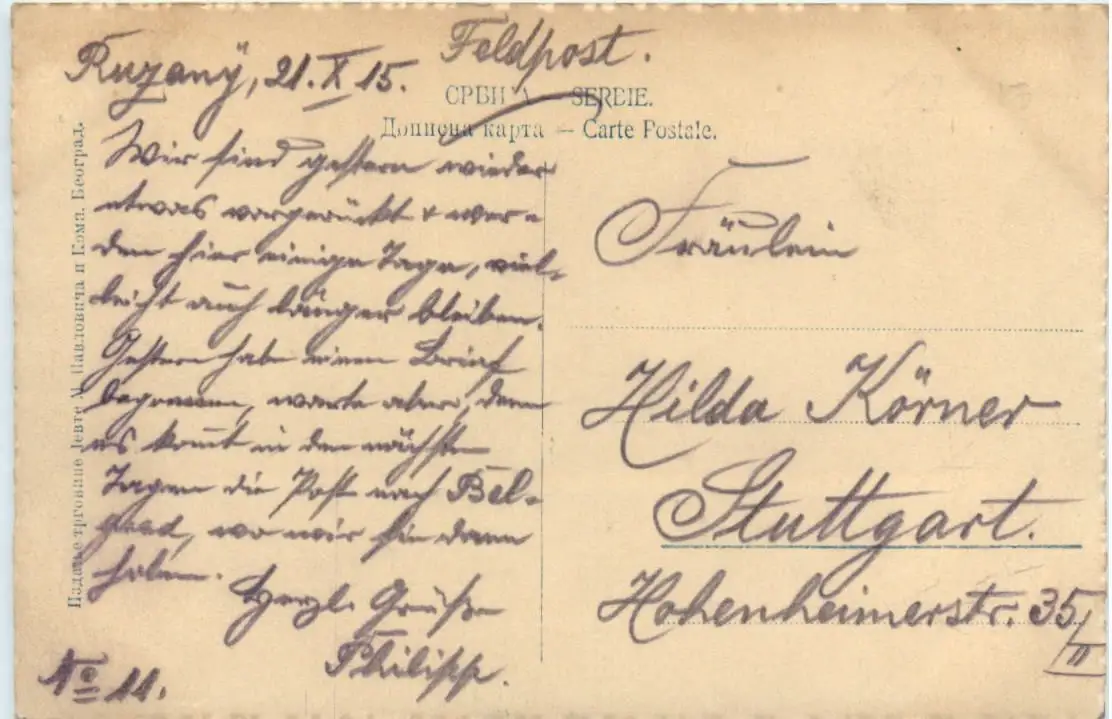 Feldpost.
Ruzany, 21. X 15.
СРБИЈА — SERBIE.
Дописна карта — Carte Postale.
Wir sind gestern wieder
etwas vorgerückt & wer=
den hier einige Tage, viel=
leicht auch länger bleiben.
Gestern habe einen Brief
begonnen, warte aber, denn
es kommt in den nächsten
Tagen die Post nach Bel=
grad, wo wir sie dann
holen.
Herzl. Grüße
Philipp.
No 11.
Fräulein
Hilda Körner
Stuttgart.
Hohenheimerstr. 35/II
Издање трговине Јевте М. Павловића и Комп. Београд.